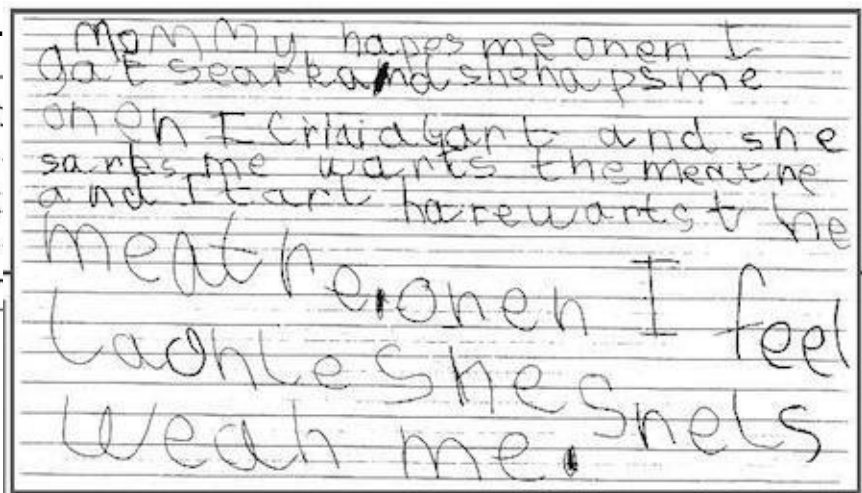 MoMMy hapes me onen I
gat seark and shehapsme
onen I Criaidgart and she
sarks me warts the meatre
and I tart harewartst he
meatre. onen I feel
Laohle she snels
weah me.